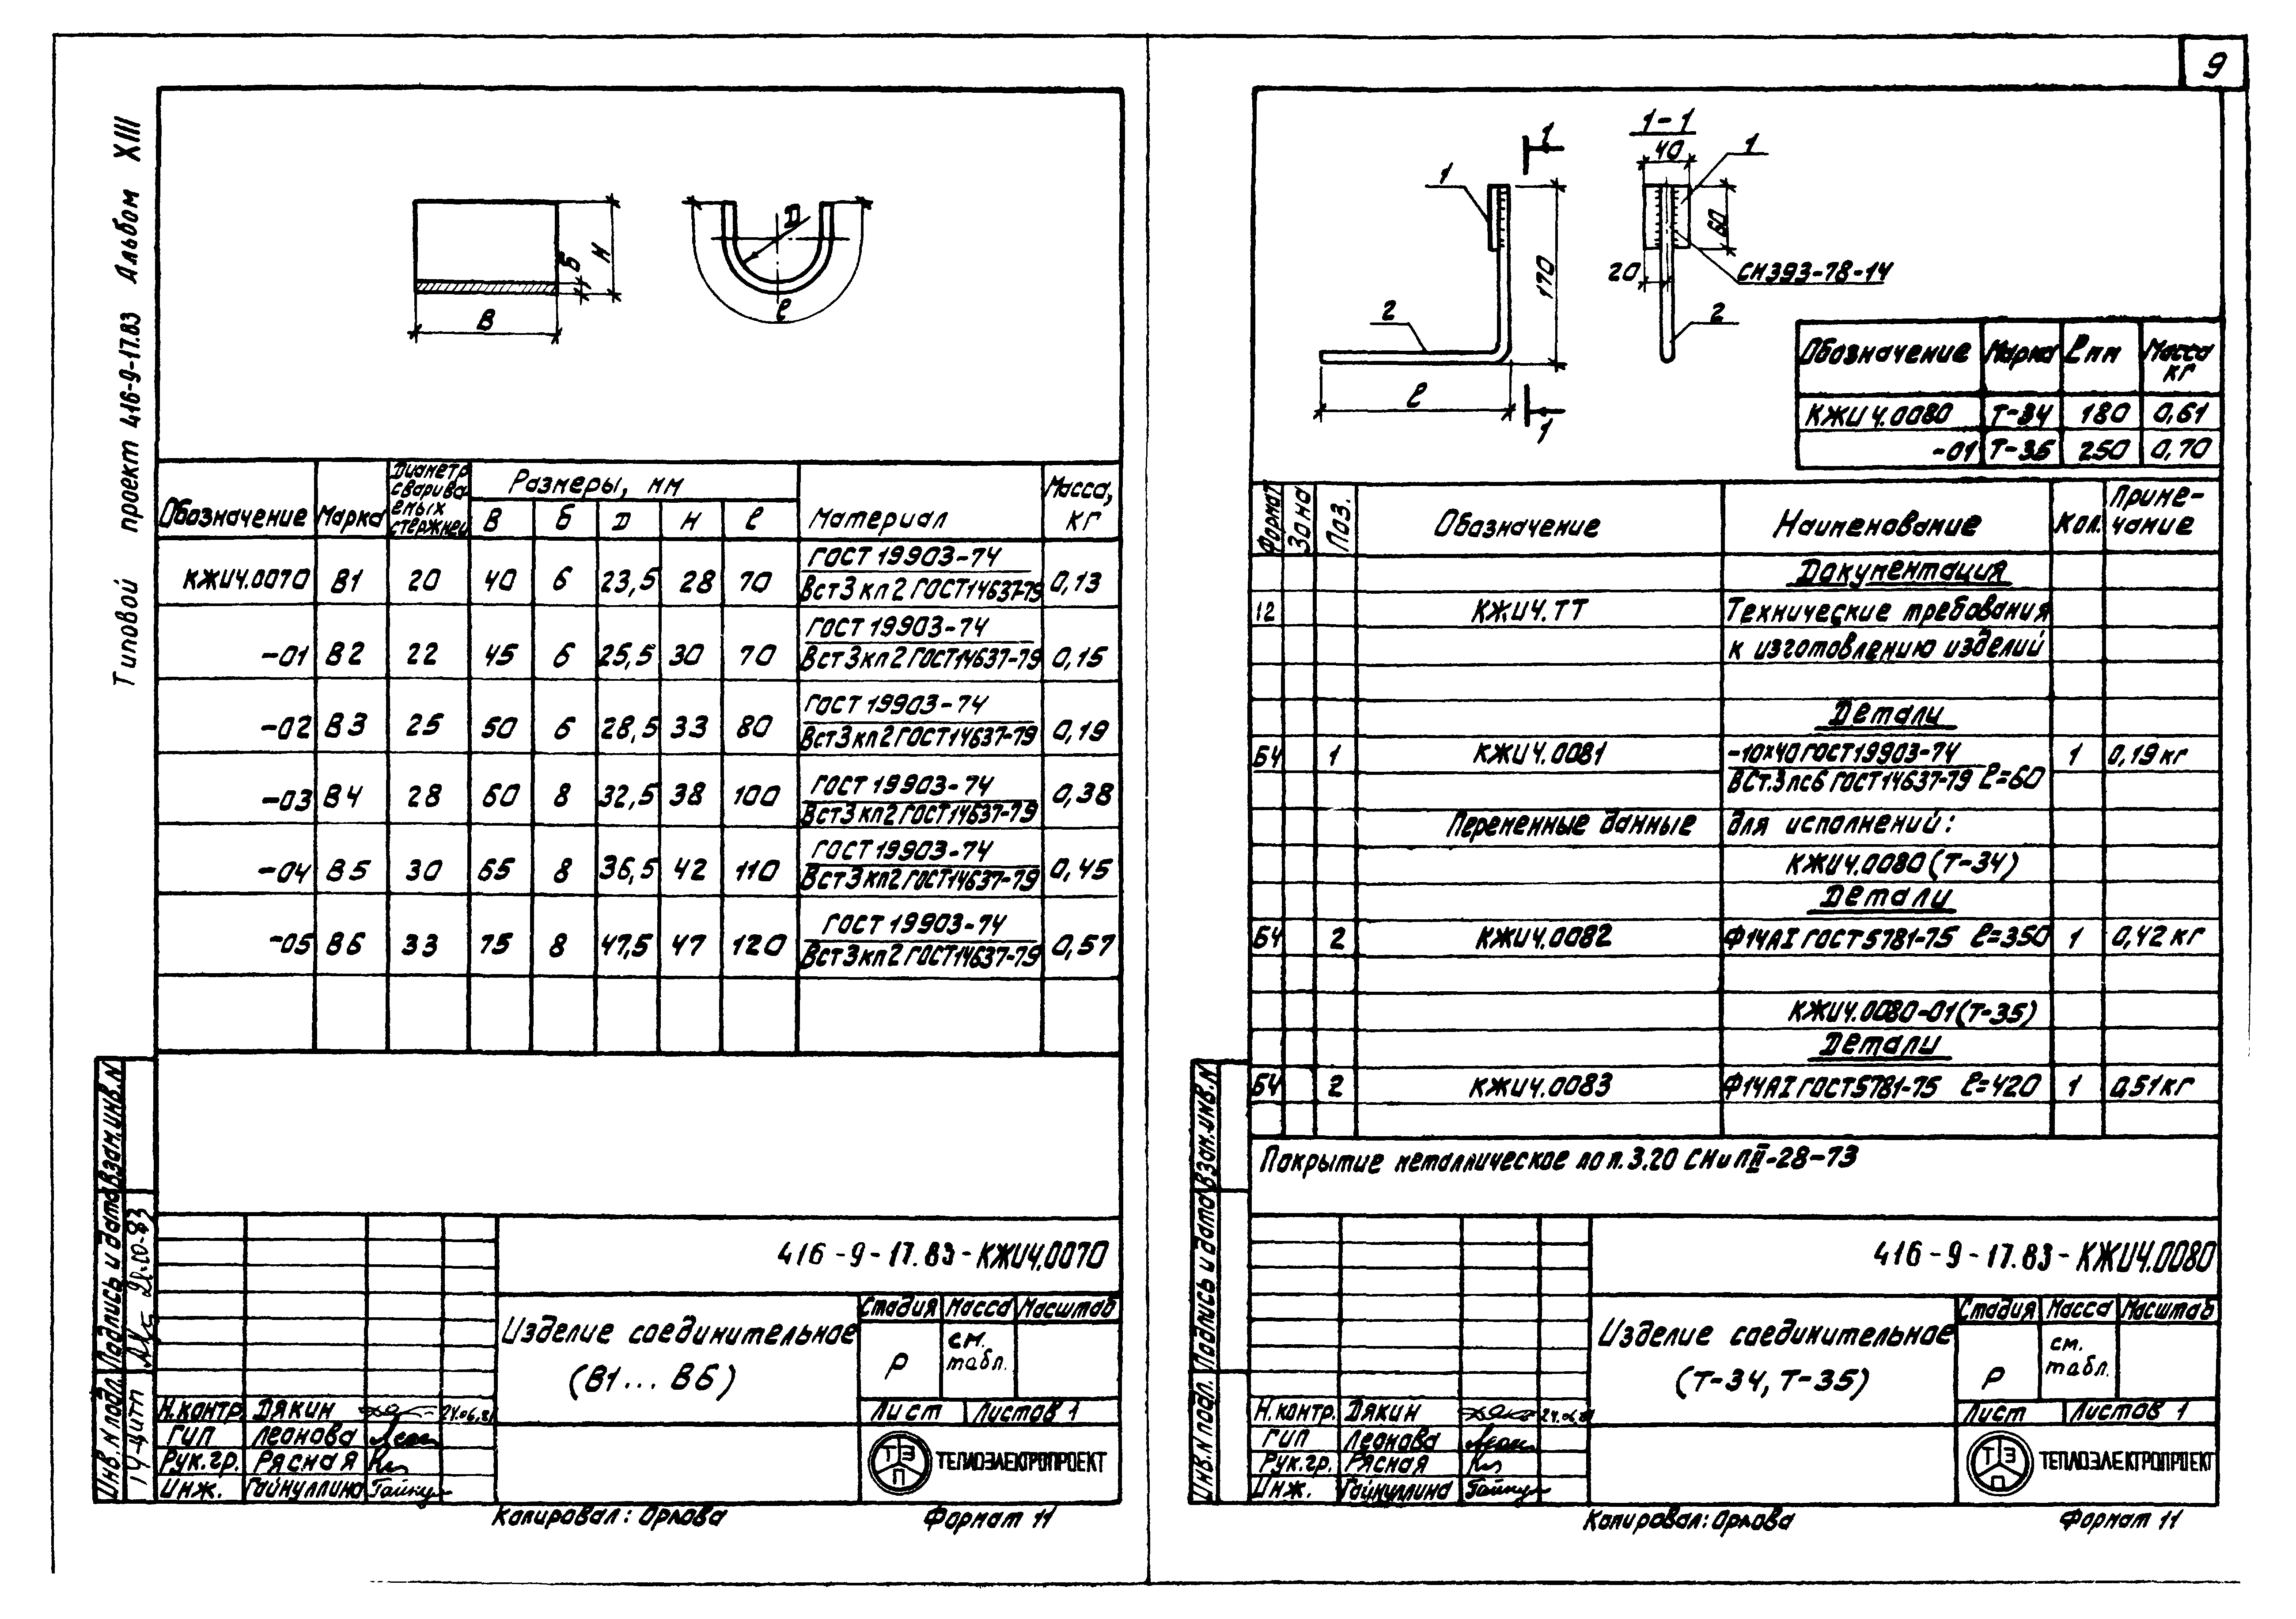 9
Типовой проект 416-9-17.83 Альбом XIII
В
б
Н
D
ℓ
Обозначение Марка Диаметр свариваемых стержней Размеры, мм Материал Масса, кг
В б D Н ℓ
КЖИ4.0070 В1 20 40 6 23,5 28 70 ГОСТ 19903-74 0,13
ВСт3кп2 ГОСТ14637-79
-01 В2 22 45 6 25,5 30 70 ГОСТ 19903-74 0,15
ВСт3кп2 ГОСТ14637-79
-02 В3 25 50 6 28,5 33 80 ГОСТ 19903-74 0,19
ВСт3кп2 ГОСТ14637-79
-03 В4 28 60 8 32,5 38 100 ГОСТ 19903-74 0,38
ВСт3кп2 ГОСТ14637-79
-04 В5 30 65 8 36,5 42 110 ГОСТ 19903-74 0,45
ВСт3кп2 ГОСТ14637-79
-05 В6 33 75 8 47,5 47 120 ГОСТ 19903-74 0,57
ВСт3кп2 ГОСТ14637-79
Инв.N подл. Подпись и дата Взам.инв.N
416-9-17.83-КЖИ4.0070
Изделие соединительное
(В1...В6)
Стадия Масса Масштаб
Р см. табл.
Лист Листов 1
Н.контр. Дякин 24.06.81
ГИП Леонова
Рук.гр. Рясная
Инж. Гайнуллина
ТЭП ТЕПЛОЭЛЕКТРОПРОЕКТ
Копировал: Орлова Формат 11
1
1
2
170
ℓ
1
1-1
40
1
60
20
СН393-78-14
2
Обозначение Марка ℓ мм Масса кг
КЖИ4.0080 Т-34 180 0,61
-01 Т-35 250 0,70
Формат Зона Поз. Обозначение Наименование Кол. Примечание
Документация
12 КЖИ4.ТТ Технические требования
к изготовлению изделий
Детали
БЧ 1 КЖИ4.0081 -10х40 ГОСТ19903-74 1 0,19 кг
ВСт.3пс6 ГОСТ14637-79 ℓ=60
Переменные данные для исполнений:
КЖИ4.0080 (Т-34)
Детали
БЧ 2 КЖИ4.0082 Ф14АI ГОСТ5781-75 ℓ=350 1 0,42 кг
КЖИ4.0080-01 (Т-35)
Детали
БЧ 2 КЖИ4.0083 Ф14АI ГОСТ5781-75 ℓ=420 1 0,51 кг
Покрытие металлическое по п.3.20 СНиП II-28-73
Инв.N подл. Подпись и дата Взам.инв.N
416-9-17.83-КЖИ4.0080
Изделие соединительное
(Т-34, Т-35)
Стадия Масса Масштаб
Р см. табл.
Лист Листов 1
Н.контр. Дякин
ГИП Леонова
Рук.гр. Рясная
Инж. Гайнуллина
ТЭП ТЕПЛОЭЛЕКТРОПРОЕКТ
Копировал: Орлова Формат 11